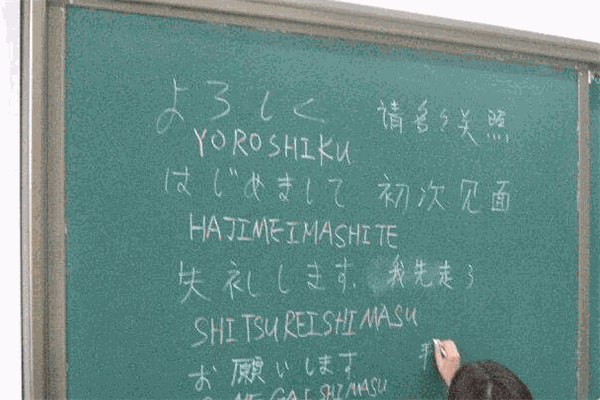 よろしく 请多多关照
YOROSHIKU
はじめまして 初次见面
HAJIMEIMASHITE
失礼します. 我先走了
SHITSUREISHIMASU
お願いします
ONEGAISHIMASU